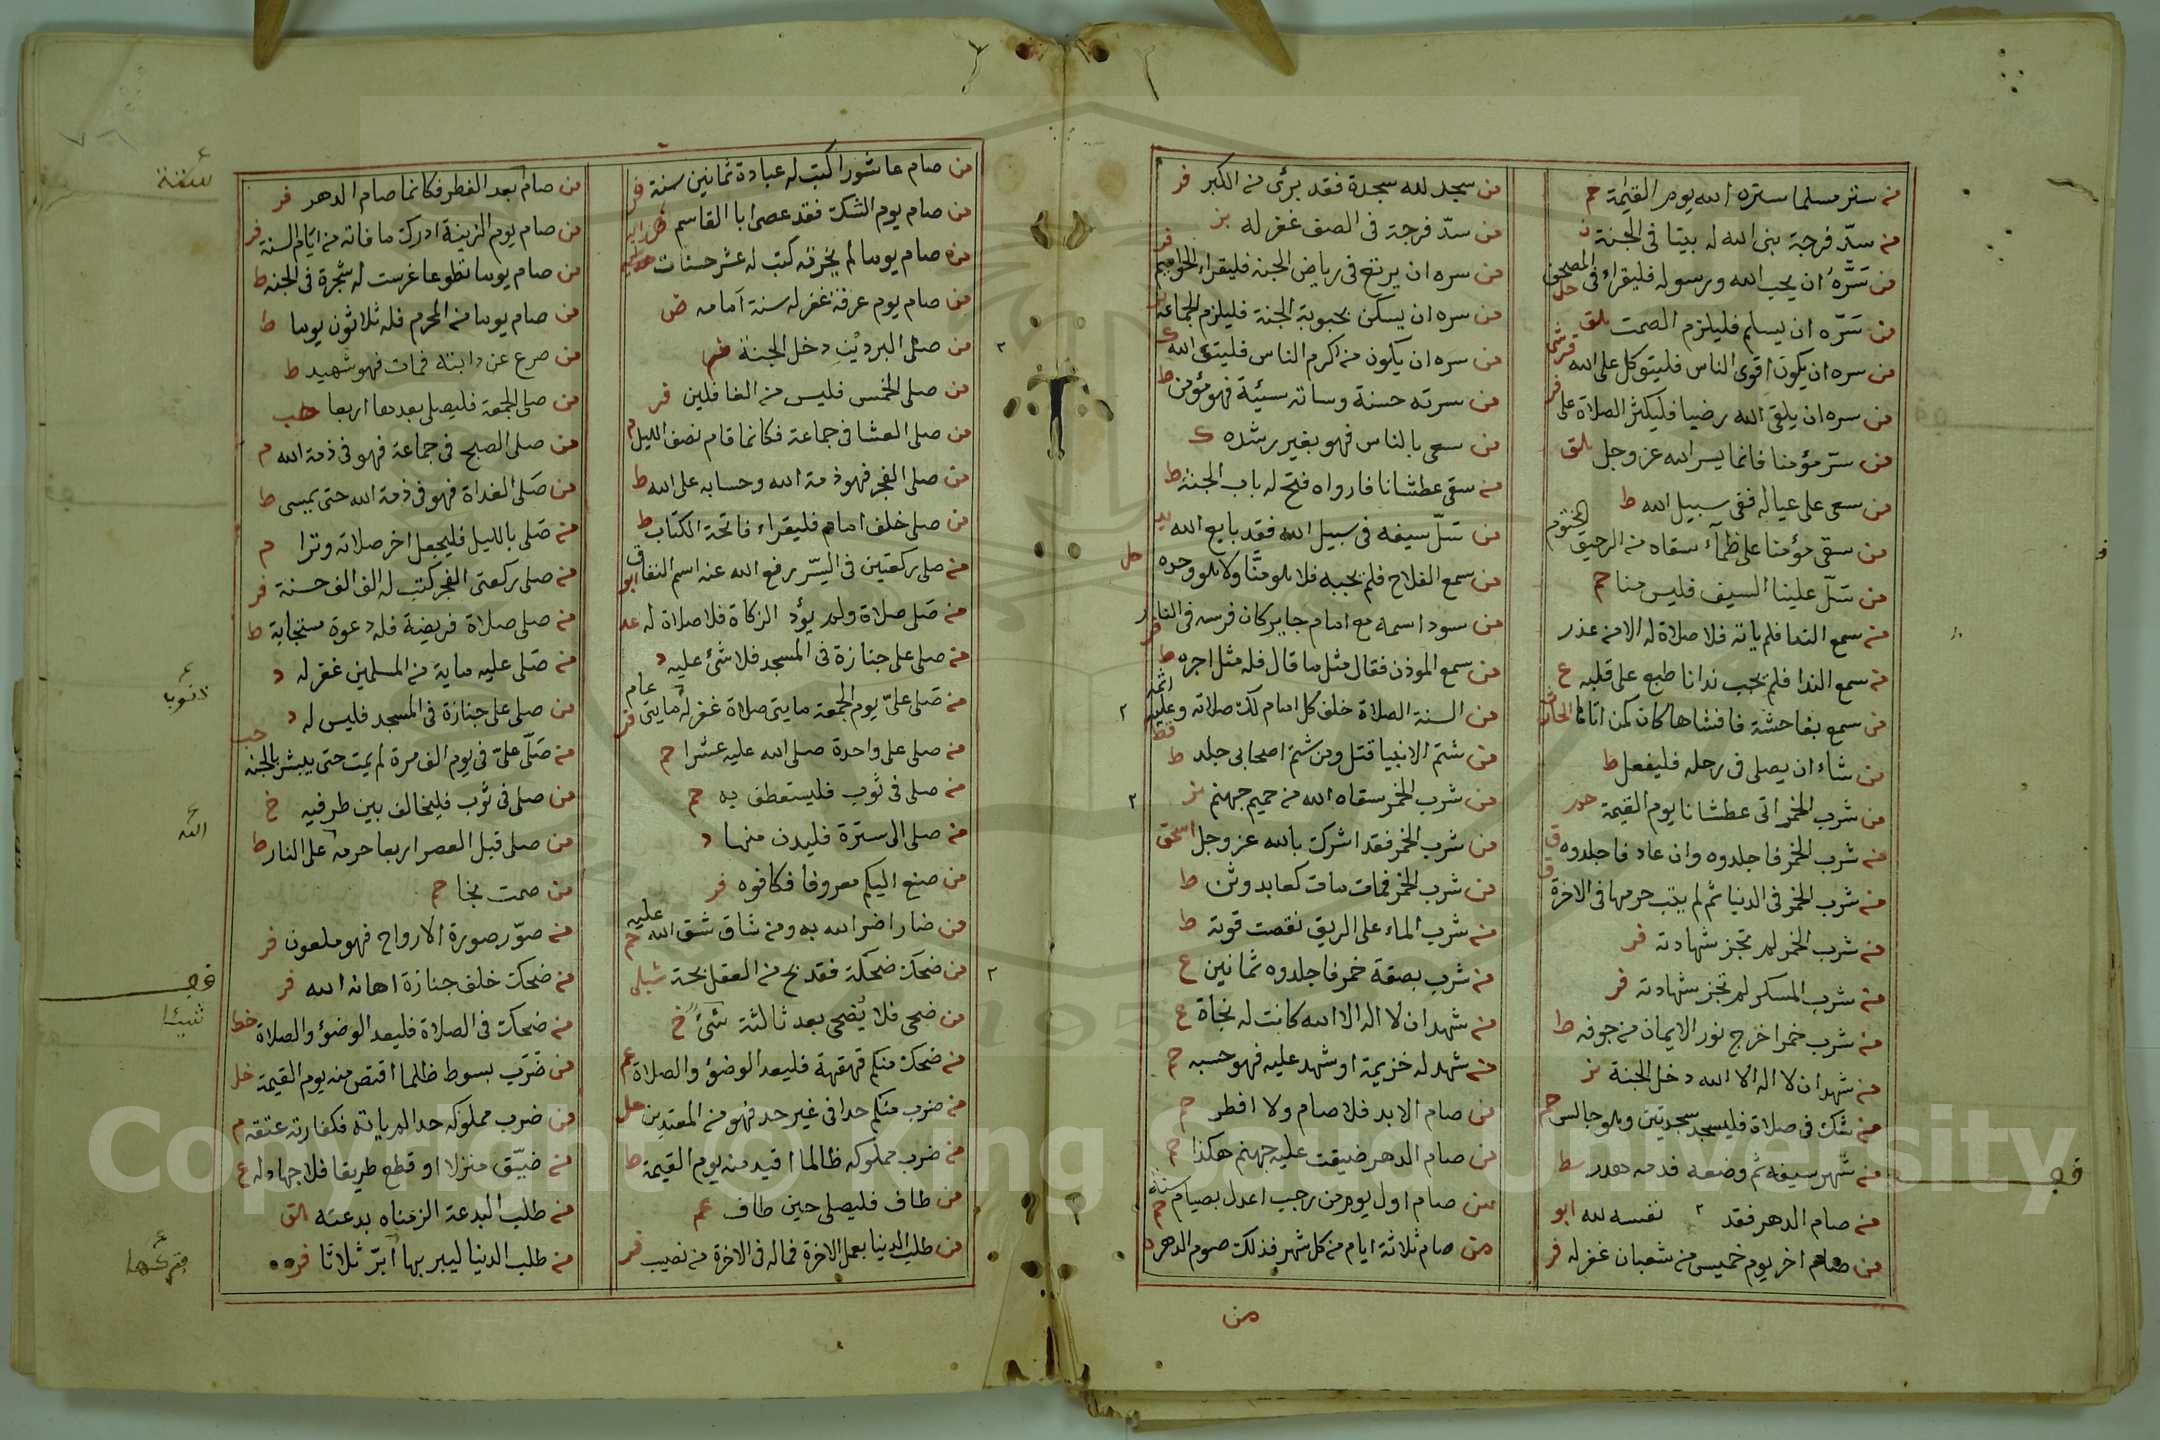 من ستر مسلما ستره الله يوم القيمة حم
من سدّ فرجة بنى الله له بيتا فى الجنة ن
من سَرَّهُ ان يحب الله ورسوله فليقراء فى المصحف حل
من سَرّه ان يسلم فليلزم الصمت لق
من سره ان يكون اقوى الناس فليتوكل على الله
من سره ان يلقى الله رضيا فليكثر الصلاة على فر
من سرّ مؤمنا فانما يسر الله عز وجل لق
من سعى على عياله ففى سبيل الله ط
من سقى مؤمنا على ظمآء سقاه من الرحيق المختوم
من سَلّ علينا السيف فليس منا حم
من سمع الندا فلم ياته فلا صلاة له الا من عذر
من سمع الندا فلم يجب ندانا طبع على قلبه ع
من سمع بفاحشة فافشاها كان كمن اتاها
من شاء ان يصلى فى رحله فليفعل ط
من شرب الخمر اتى عطشانا يوم القيمة حم
من شرب الخمر فاجلدوه وان عاد فاجلدوه ق
من شرب الخمر فى الدنيا ثم لم يتب حرمها فى الاخرة ق
من شرب الخمر لم تجز شهادته فر
من شرب المسكر لم تجز شهادته فر
من شرب خمرا خرج نور الايمان من جوفه ط
من شهد ان لا اله الا الله دخل الجنة نز
من شك فى صلاة فليسجد سجدتين وهو جالس حم
من شهر سيفه ثم وضعه فدمه هدر
من صام الدهر فقد ٢ نفسه لله ابو
من صام اخر يوم خميس من شعبان غفر له فر
من سجد لله سجدة فقد برئ من الكبر فر
من سدّ فرجة فى الصف غفر له بز
من سره ان يرتح فى رياض الجنة فليقراء الحواميم فر
من سره ان يسكن بحبوبة الجنة فليلزم الجماعة
من سره ان يكون من اكرم الناس فليتق الله
من سرته حسنة وساته سيئة فهو مؤمن ط
من سعى بالناس فهو بغير رشده ك
من سقى عطشانا فارواه فتح له باب الجنة ط
من سَلّ سيفه فى سبيل الله فقد بايع الله
من سمع الفلاح فلم يجبه فلا هو منّا ولا هو وحده حل
من سود اسمه مع امام جاير كان فرسه فى النار
من سمع الموذن فقال مثل ما قال فله مثل اجره ط
من السنة الصلاة خلف كل امام لك صلاته وعليه اثمه قط
من شتم الانبيا قتل ومن شتم اصحابى جلد ط
من شرب الخمر سقاه الله من حميم جهنم بز
من شرب الخمر فقد اشرك بالله عز وجل اسحق
من شرب الخمر فمات مات كعابد وثن ط
من شرب الماء على الريق نقصت قوته ط
من شرب بصقة خمر فاجلدوه ثمانين ع
من شهد ان لا اله الا الله كانت له نجاة ع
من شهد له خزيمة او شهد عليه فهو حسبه حم
من صام الابد فلا صام ولا افطر حم
من صام الدهر ضيقت عليه جهنم هكذا حم
من صام اول يوم من رجب اعدل بصيام سنة حم
من صام ثلاثة ايام من كل شهر فذلك صوم الدهر ه
من
من صام عاشورا كتب له عبادة ثمانين سنة فر
من صام يوم الشك فقد عصى ابا القاسم
من صام يوما لم يخرقه كتب له عشر حسنات
من صام يوم عرفة غفر له سنة امامه ض
من صلى البردين دخل الجنة
من صلى الخمس فليس من الغافلين فر
من صلى العشا فى جماعة فكانما قام نصف الليل م
من صلى الفجر فهو ذمة الله وحسابه على الله ط
من صلى خلف امام فليقراء فاتحة الكتاب ط
من صلى ركعتين فى السّر رفع الله عنه اسم النفاق ابو
من صَلى صلاة ولم يؤد الزكاة فلا صلاة له عد
من صلى على جنازة فى المسجد فلا شئ عليه د
من صَلى علىّ يوم الجمعة مايتى صلاة غفر له مايتى عام فر
من صلى على واحدة صلى الله عليه عشرا حم
من صلى فى ثوب فليستعطف به حم
من صلى الى سترة فليدن منها د
من صنع اليكم معروفا فكافوه فر
من ضار اضر الله به ومن شاق شق الله عليه حم
من ضحك ضحكة فقد بح من العقل بحة شيلى
من ضحى فلا يُضحى بعد ثالثة شئ خ
من ضحك منكم قهقهة فليعد الوضؤ والصلاة عم
من ضرب منكم حدا فى غير حد فهو من المعتدين حل
من ضرب مملوكه ظالما اقيد منه يوم القيمة ط
من طاف فليصلى حين طاف عم
من طلب الدنيا بعمل الاخرة فماله فى الاخرة من نصيب فر
من صام بعد الفطر فكانما صام الدهر فر
من صام يوم الزينة ادرك ما فاته من ايام السنة فر
من صام يوما تطوعا غرست له شجرة فى الجنة ط
من صام يوما من المحرم فله ثلاثون يوما ط
من صرع عن دابته فمات فهو شهيد ط
من صلى الجمعة فليصلى بعدها اربعا حب
من صلى الصبح فى جماعة فهو فى ذمة الله م
من صَلى الغداة فهو فى ذمة الله حتى يمسى ط
من صَلى بالليل فليجعل اخر صلاته وترا م
من صلى ركعتى الفجر كتب له الف الف حسنة فر
من صلى صلاة فريضة فله دعوة مستجابة ط
من صَلى عليه ماية من المسلمين غفر له د
من صلى على جنازة فى المسجد فليس له د
من صَلّ علىّ فى يوم الف مرة لم يمت حتى يبشر بالجنة حب
من صلى فى ثوب فليخالف بين طرفيه خ
من صلى قبل العصر اربعا حرمه على النار ط
من صمت نجا حم
من صوّر صورة الارواح فهو ملعون فر
من ضحك خلف جنازة اهانه الله فر
من ضحك فى الصلاة فليعد الوضؤ والصلاة خط
من ضَرَب بسوط ظلما اقتص منه يوم القيمة خل
من ضرب مملوكه حدا لم ياته فكفارته عتقه م
من ضيّق منزلا او قطع طريقا فلا جهاد له ع
من طلب البدعة الزمناه بدعته لق
من طلب الدنيا ليبر بها ابرّ ثلاثا فر
ذنوب
الله
شيئا
Copyright © King Saud University
1957